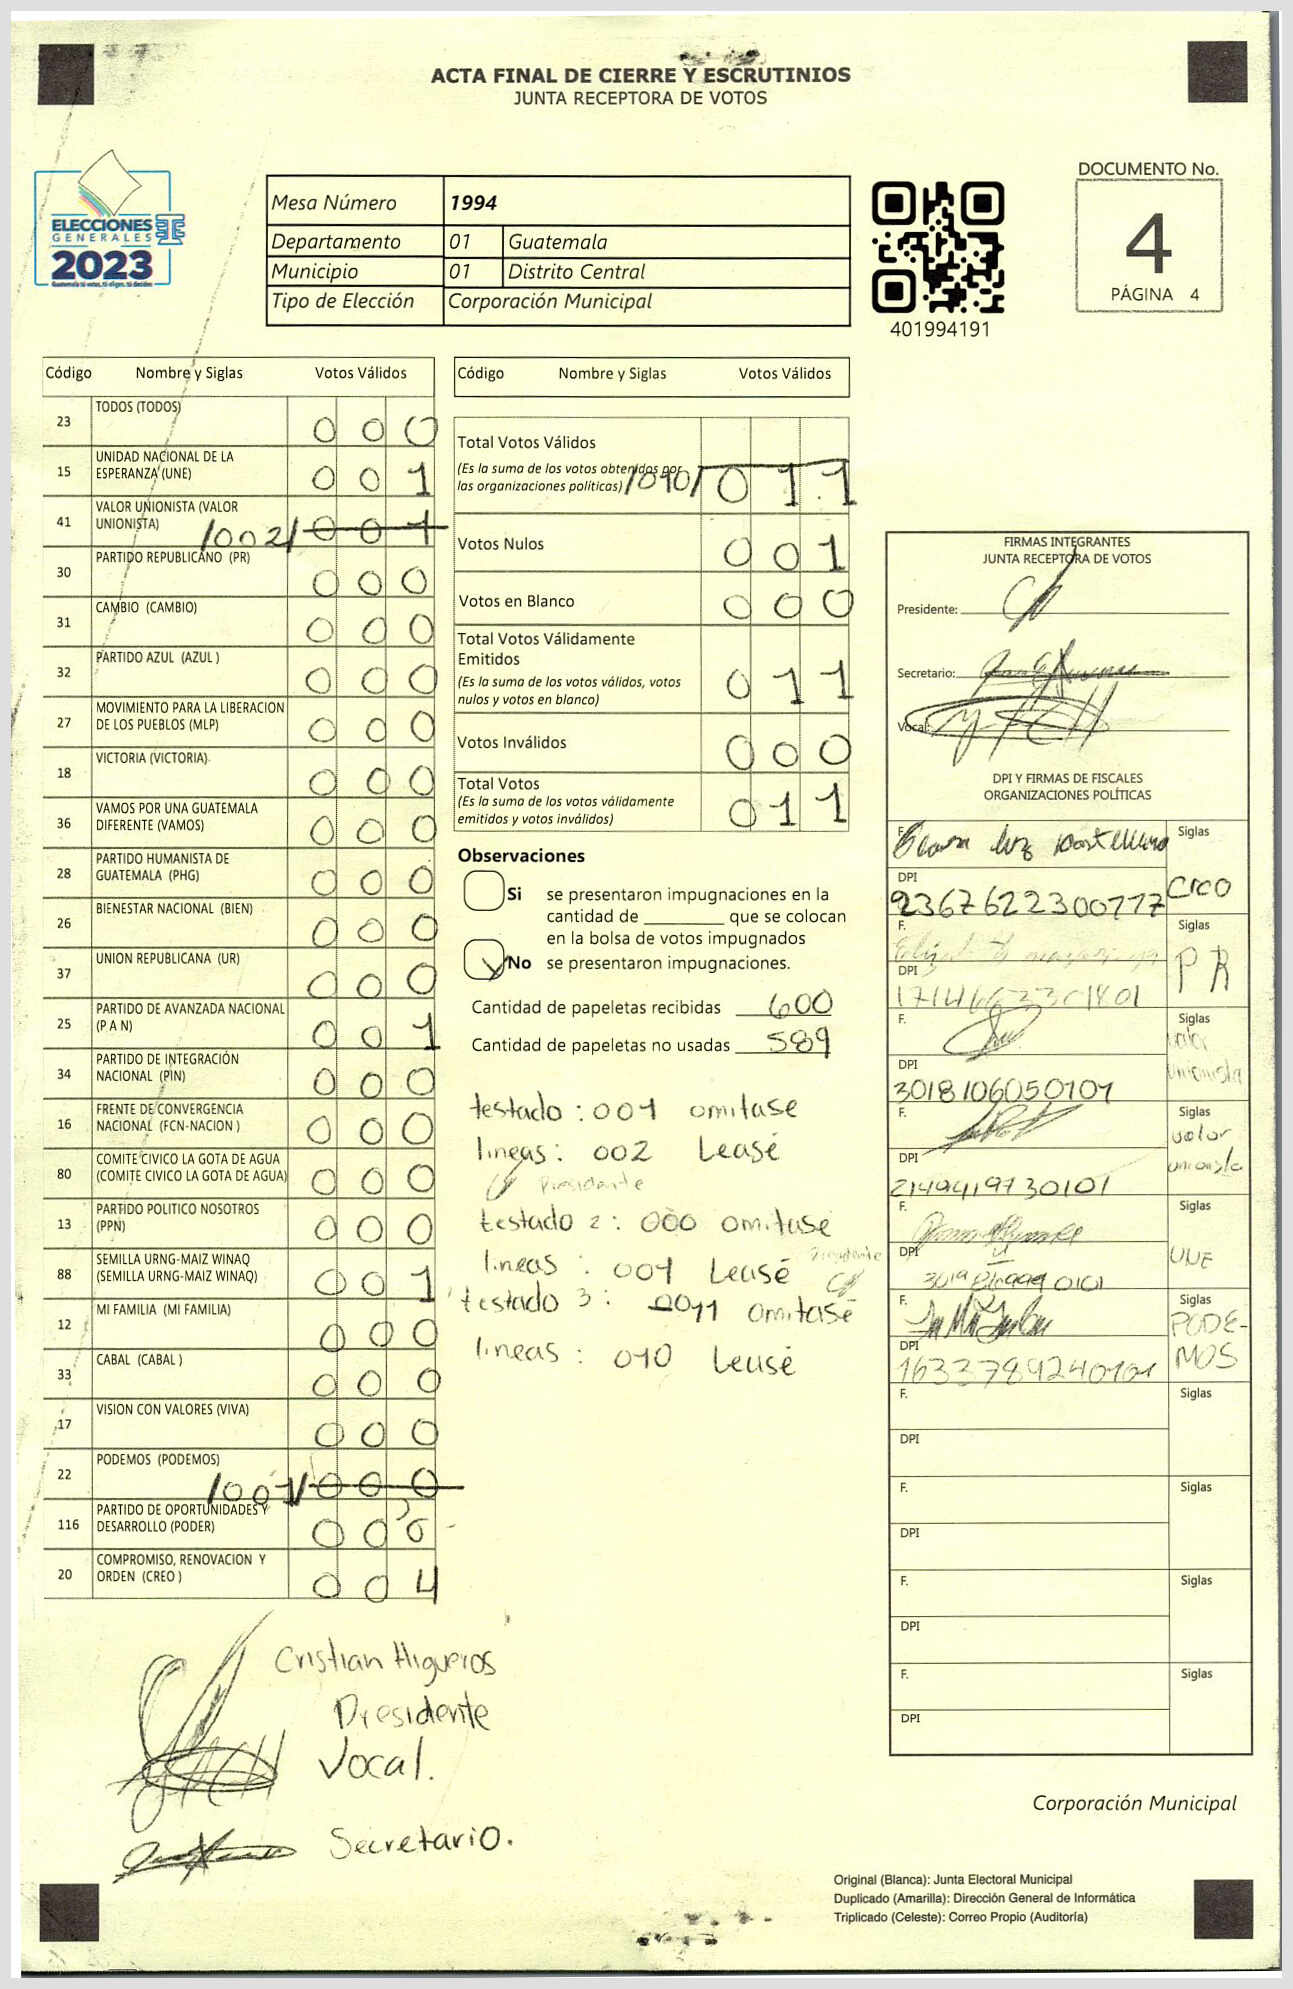 ACTA FINAL DE CIERRE Y ESCRUTINIOS
JUNTA RECEPTORA DE VOTOS
ELECCIONES
GENERALES
2023
Guatemala tú votas, tú eliges, tú decides
Mesa Número 1994
Departamento 01 Guatemala
Municipio 01 Distrito Central
Tipo de Elección Corporación Municipal
401994191
DOCUMENTO No.
4
PÁGINA 4
Código Nombre y Siglas Votos Válidos
23 TODOS (TODOS) 0 0 0
15 UNIDAD NACIONAL DE LA ESPERANZA (UNE) 0 0 1
41 VALOR UNIONISTA (VALOR UNIONISTA) /002/ 0 0 1
30 PARTIDO REPUBLICANO (PR) 0 0 0
31 CAMBIO (CAMBIO) 0 0 0
32 PARTIDO AZUL (AZUL ) 0 0 0
27 MOVIMIENTO PARA LA LIBERACION DE LOS PUEBLOS (MLP) 0 0 0
18 VICTORIA (VICTORIA) 0 0 0
36 VAMOS POR UNA GUATEMALA DIFERENTE (VAMOS) 0 0 0
28 PARTIDO HUMANISTA DE GUATEMALA (PHG) 0 0 0
26 BIENESTAR NACIONAL (BIEN) 0 0 0
37 UNION REPUBLICANA (UR) 0 0 0
25 PARTIDO DE AVANZADA NACIONAL (P A N) 0 0 1
34 PARTIDO DE INTEGRACIÓN NACIONAL (PIN) 0 0 0
16 FRENTE DE CONVERGENCIA NACIONAL (FCN-NACION ) 0 0 0
80 COMITE CIVICO LA GOTA DE AGUA (COMITE CIVICO LA GOTA DE AGUA) 0 0 0
13 PARTIDO POLITICO NOSOTROS (PPN) 0 0 0
88 SEMILLA URNG-MAIZ WINAQ (SEMILLA URNG-MAIZ WINAQ) 0 0 1
12 MI FAMILIA (MI FAMILIA) 0 0 0
33 CABAL (CABAL ) 0 0 0
17 VISION CON VALORES (VIVA) 0 0 0
22 PODEMOS (PODEMOS) /001/ 0 0 0
116 PARTIDO DE OPORTUNIDADES Y DESARROLLO (PODER) 0 0 0
20 COMPROMISO, RENOVACION Y ORDEN (CREO ) 0 0 4
Cristian Higueros
Presidente
Vocal.
Secretario.
Código Nombre y Siglas Votos Válidos
Total Votos Válidos
(Es la suma de los votos obtenidos por
las organizaciones políticas) /010/ 0 1 1
Votos Nulos 0 0 1
Votos en Blanco 0 0 0
Total Votos Válidamente
Emitidos
(Es la suma de los votos válidos, votos
nulos y votos en blanco) 0 1 1
Votos Inválidos 0 0 0
Total Votos
(Es la suma de los votos válidamente
emitidos y votos inválidos) 0 1 1
Observaciones
Si se presentaron impugnaciones en la
cantidad de ________ que se colocan
en la bolsa de votos impugnados
No se presentaron impugnaciones.
Cantidad de papeletas recibidas 600
Cantidad de papeletas no usadas 589
testado : 001 omitase
lineas : 002 Leasé
Presidente
testado 2 : 000 omitase
lineas : 001 Leasé
Presidente
testado 3 : 0011 omitasé
lineas : 010 Leasé
FIRMAS INTEGRANTES
JUNTA RECEPTORA DE VOTOS
Presidente:
Secretario:
Vocal:
DPI Y FIRMAS DE FISCALES
ORGANIZACIONES POLÍTICAS
F. Siglas
DPI
2367622300777 Creo
F. Siglas
DPI PR
F. Siglas
DPI valor unionista
3018106050101
F. Siglas
DPI valor unionista
2149419730101
F. Siglas
DPI UNE
F. Siglas
DPI PODE-
1633789240101 MOS
F. Siglas
DPI
F. Siglas
DPI
F. Siglas
DPI
F. Siglas
DPI
Corporación Municipal
Original (Blanca): Junta Electoral Municipal
Duplicado (Amarilla): Dirección General de Informática
Triplicado (Celeste): Correo Propio (Auditoría)